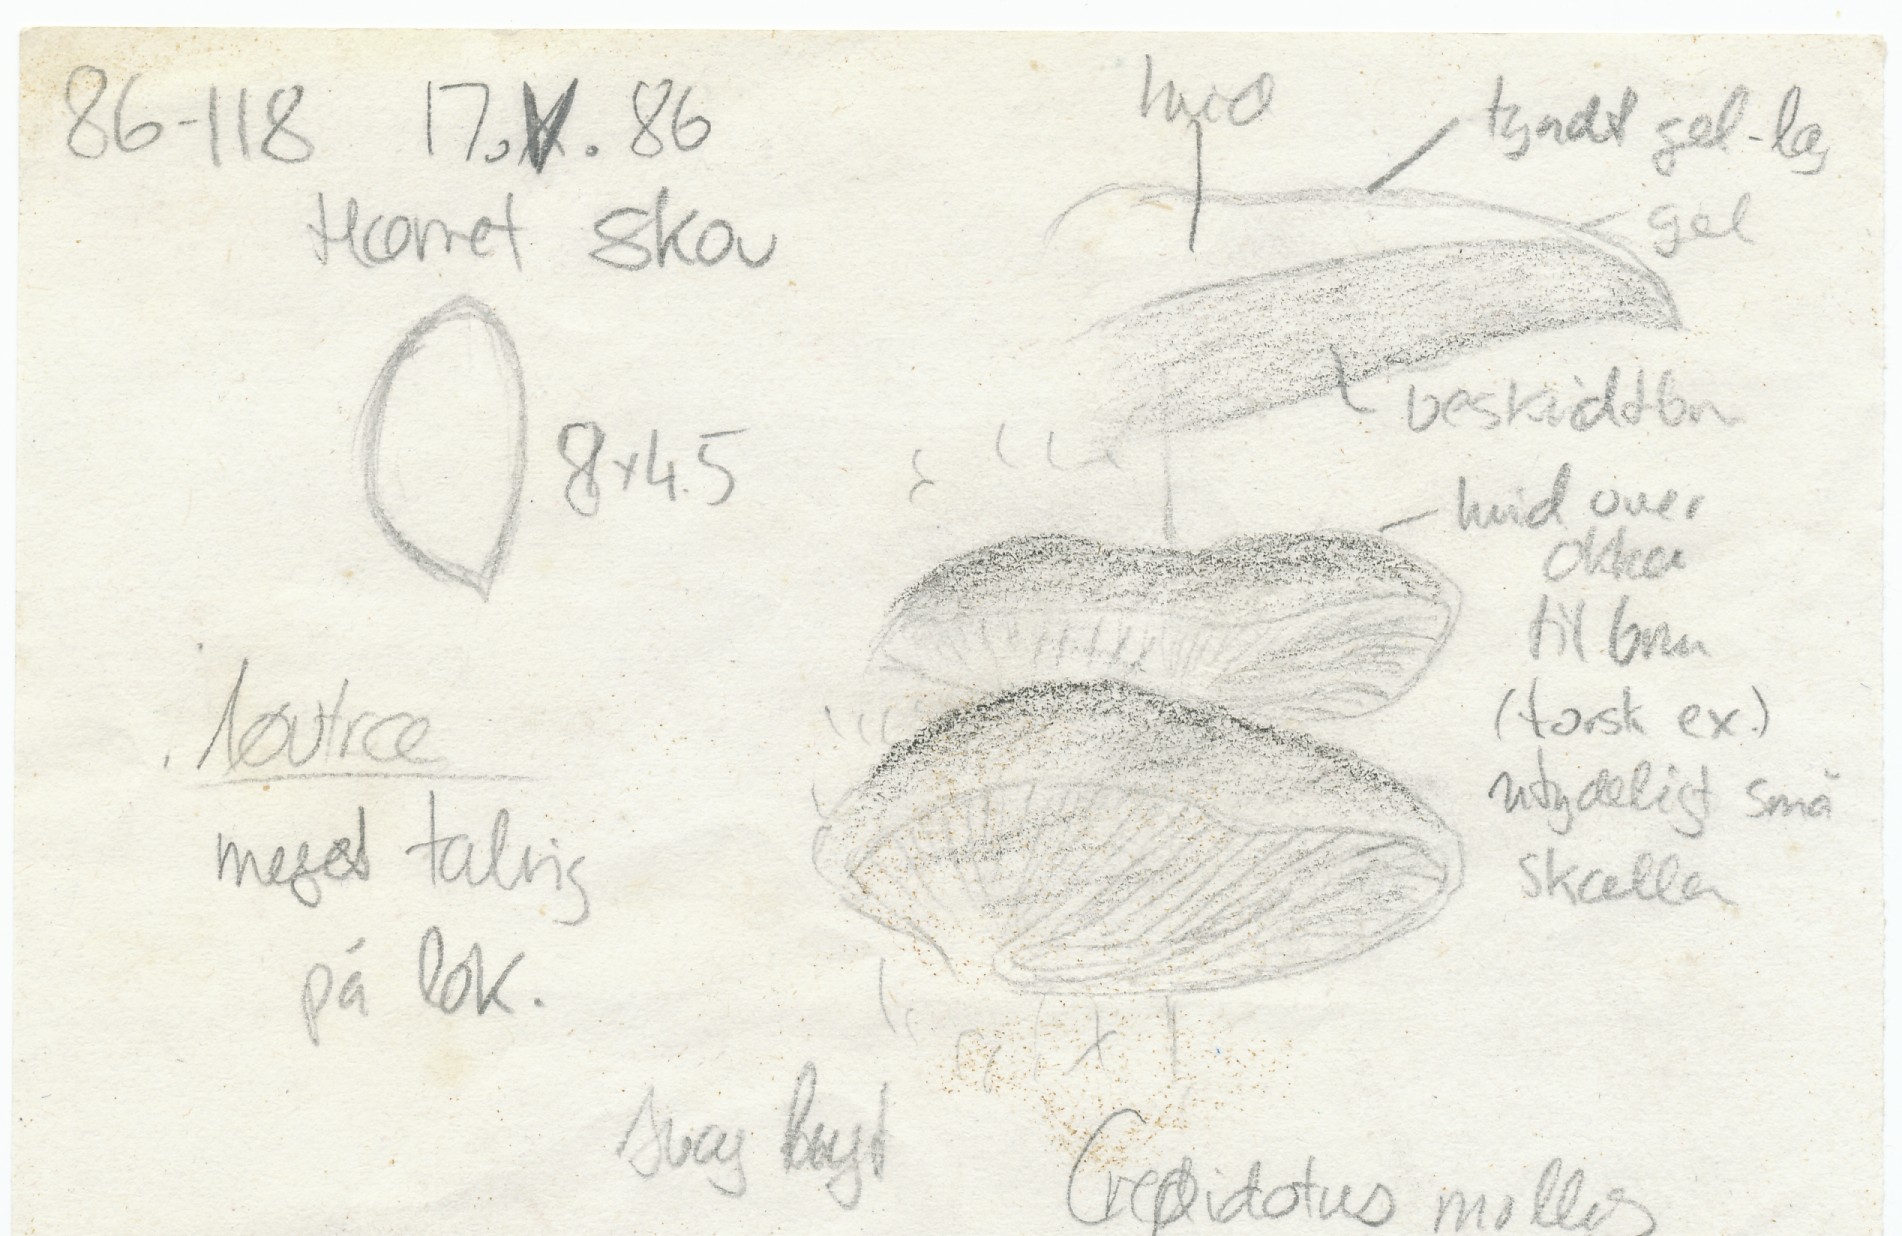 86-118 17.V.86
Hornet Skov
hvid
tyndt gel-lag
gel
8x4.5
beskidtbrun
hvid over
okker
til brun
(tørsk ex.)
utydeligt små
skæller
løvtræ
meget talrig
på lok.
svag lugt
Crepidotus mollis